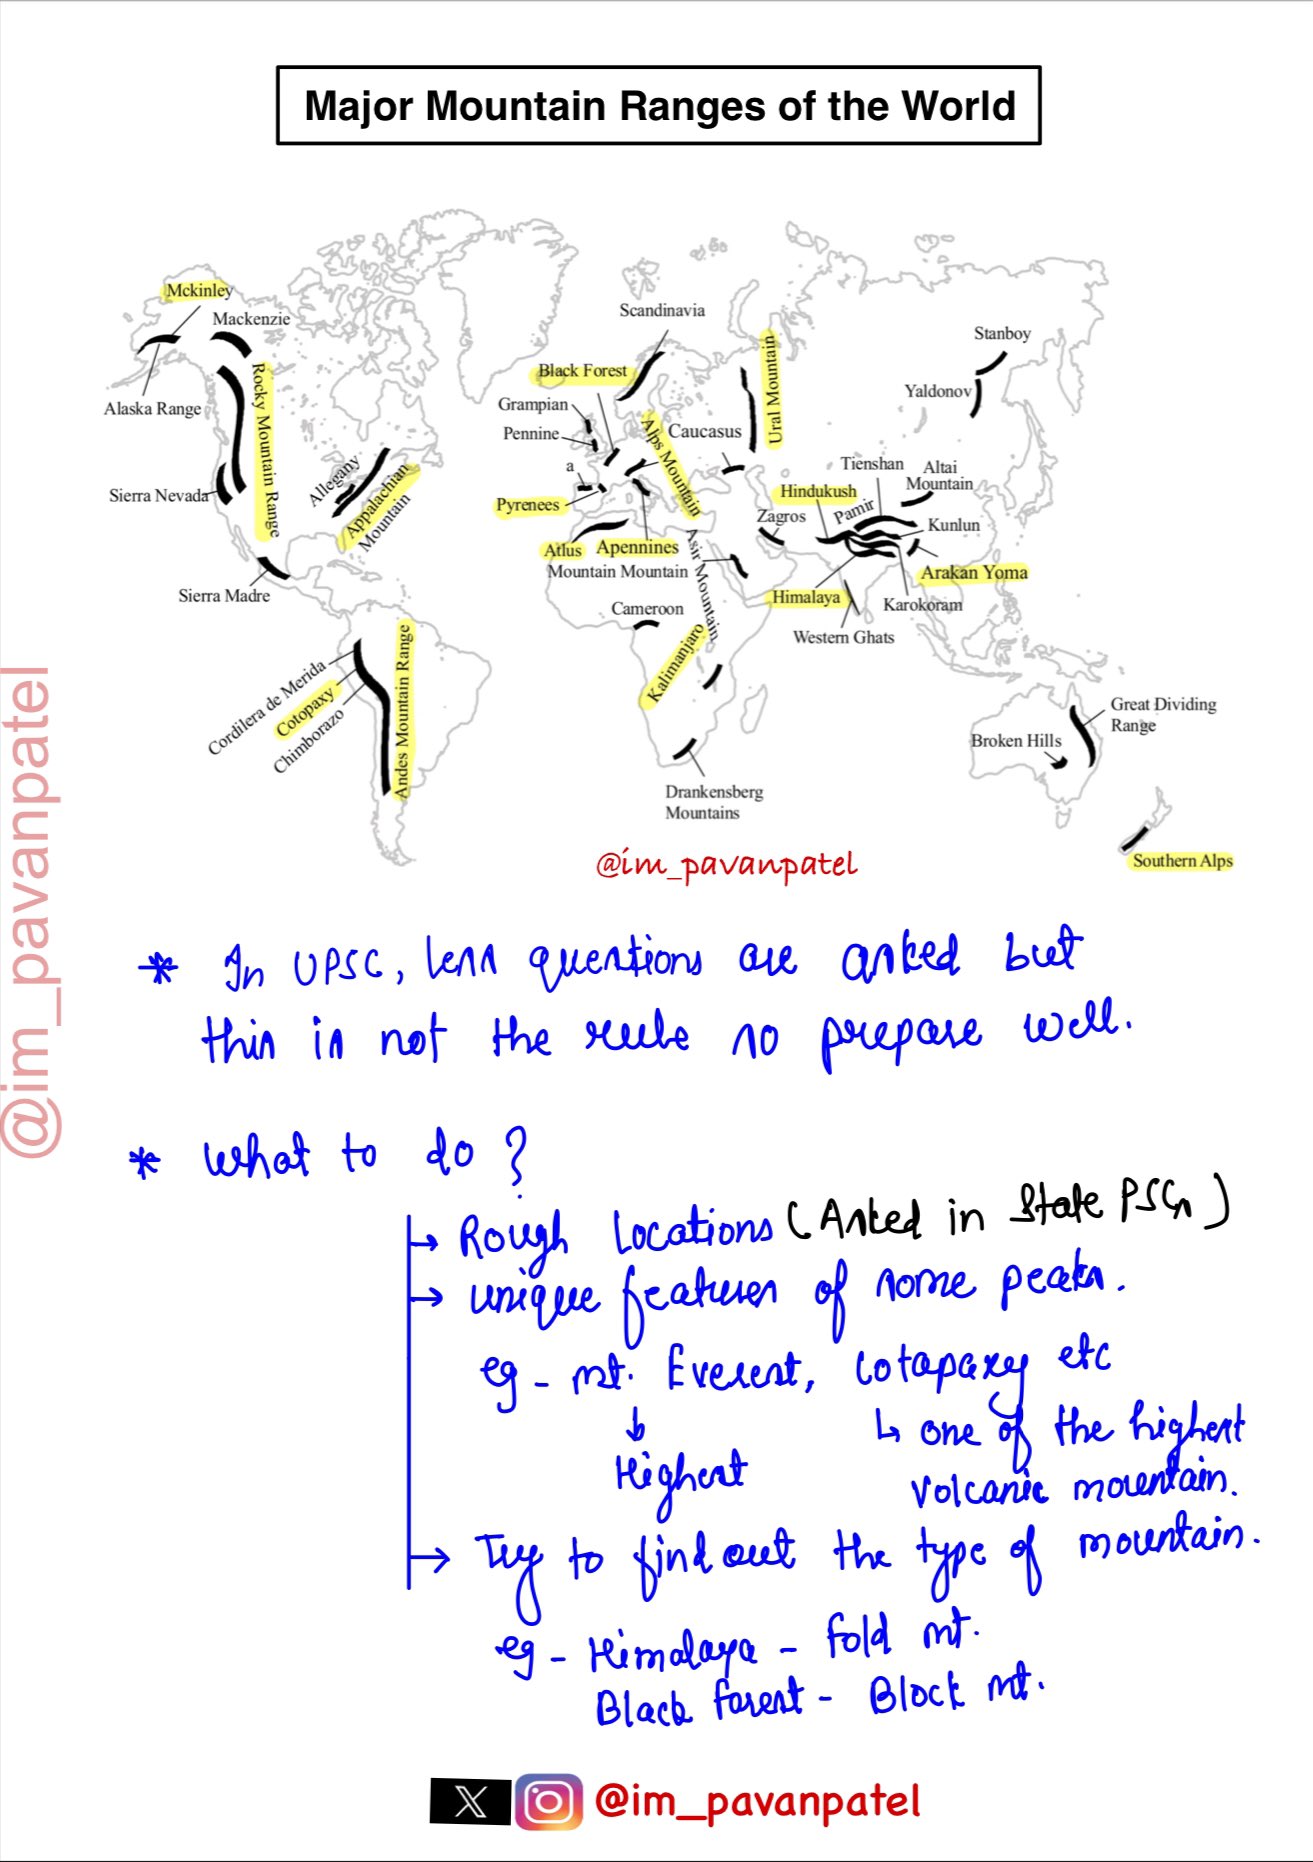 Major Mountain Ranges of the World
Mckinley
Mackenzie
Alaska Range
Rocky Mountain Range
Sierra Nevada
Allegany
Appalachian
Mountain
Sierra Madre
Cordilera de Merida
Cotopaxy
Chimborazo
Andes Mountain Range
Scandinavia
Black Forest
Grampian
Pennine
a
Pyrenees
Alps Mountain
Caucasus
Ural Mountain
Stanboy
Yaldonov
Tienshan
Altai
Mountain
Hindukush
Pamir
Zagros
Kunlun
Atlus
Mountain
Apennines
Mountain
Asir Mountain
Arakan Yoma
Himalaya
Karokoram
Western Ghats
Cameroon
Kalimanjaro
Drankensberg
Mountains
Great Dividing
Range
Broken Hills
Southern Alps
@im_pavanpatel
@im_pavanpatel
* In UPSC, less questions are asked but
this is not the rule so prepare well.
* What to do ?
→ Rough Locations (Asked in State PSCs)
→ unique features of some peaks.
eg - mt. Everest, Cotapaxy etc
↓ Highest
↳ one of the highest
volcanic mountain.
→ Try to find out the type of mountain.
eg - Himalaya - Fold mt.
Black Forest - Block mt.
@im_pavanpatel